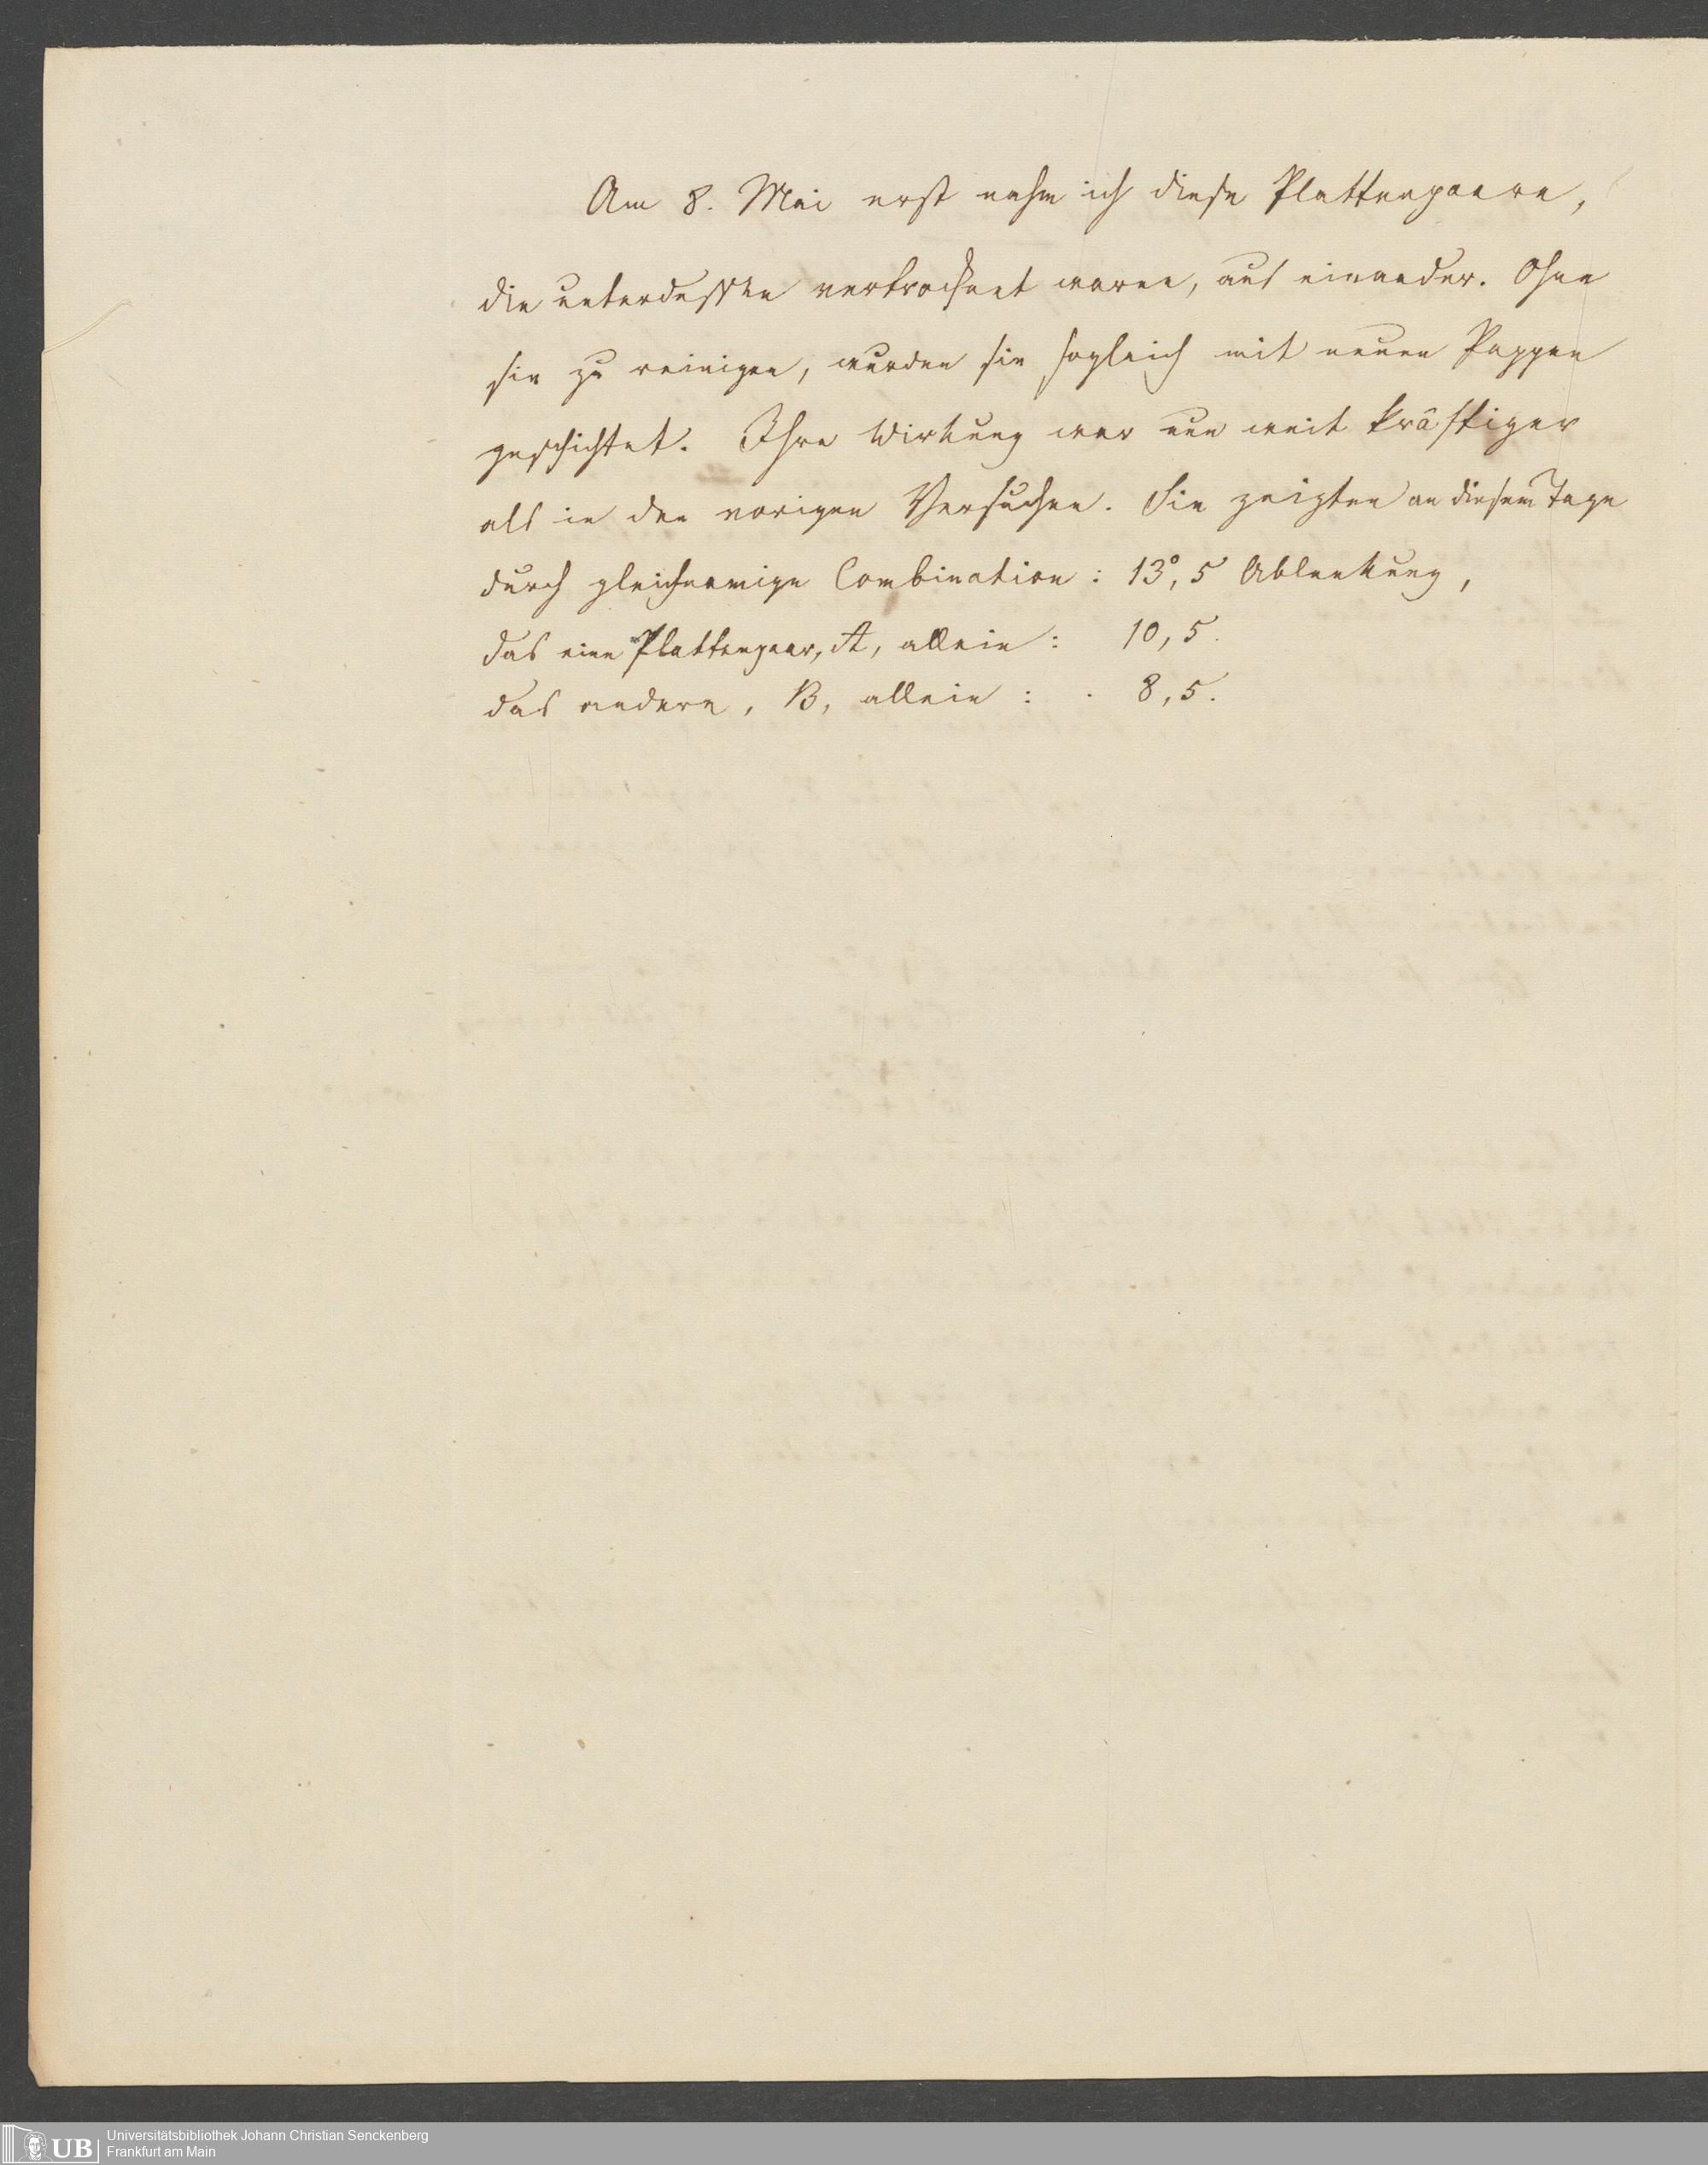 Am 8. Mai erst nahm ich diese Plattenpaare,
die unterdessen vertrocknet waren, aus einander. Ohne
sie zu reinigen, wurden sie sogleich mit neuen Pappen
geschichtet. Ihre Wirkung war nun weit kräftiger
als in den vorigen Versuchen. Sie zeigten an diesem Tage
durch gleichnamige Combination: 13°,5 Ablenkung,
das eine Plattenpaar, A, allein: 10,5.
das andere, B, allein: . 8,5.
UB
Universitätsbibliothek Johann Christian Senckenberg
Frankfurt am Main